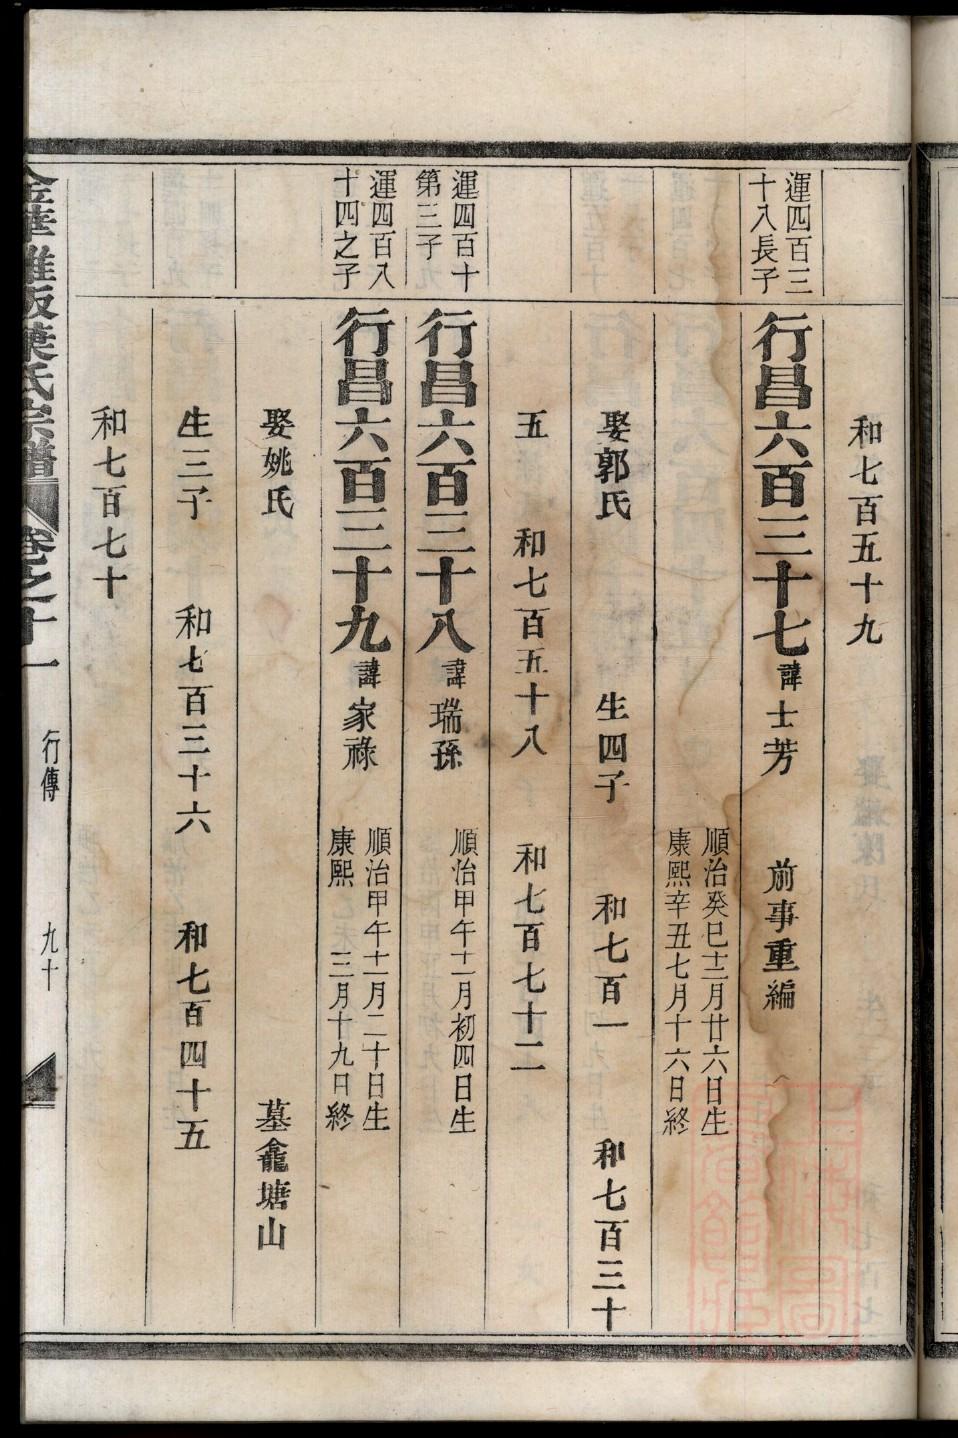 和七百五十九
運四百三
十八長子
行昌六百三十七 諱 士芳 前事重編
順治癸巳十二月廿六日生
康熙辛丑七月十六日終
娶郭氏 生四子 和七百一 和七百三十
五 和七百五十八 和七百七十二
運四百十
第三子
行昌六百三十八 諱 瑞孫 順治甲午十一月初四日生
運四百八
十四之子
行昌六百三十九 諱 家祿 順治甲午十一月二十日生
康熙乙未三月十九日終
娶姚氏 墓龕塘山
生三子 和七百三十六 和七百四十五
和七百七十
金華雅畈葉氏宗譜 卷之十一 行傳 九十